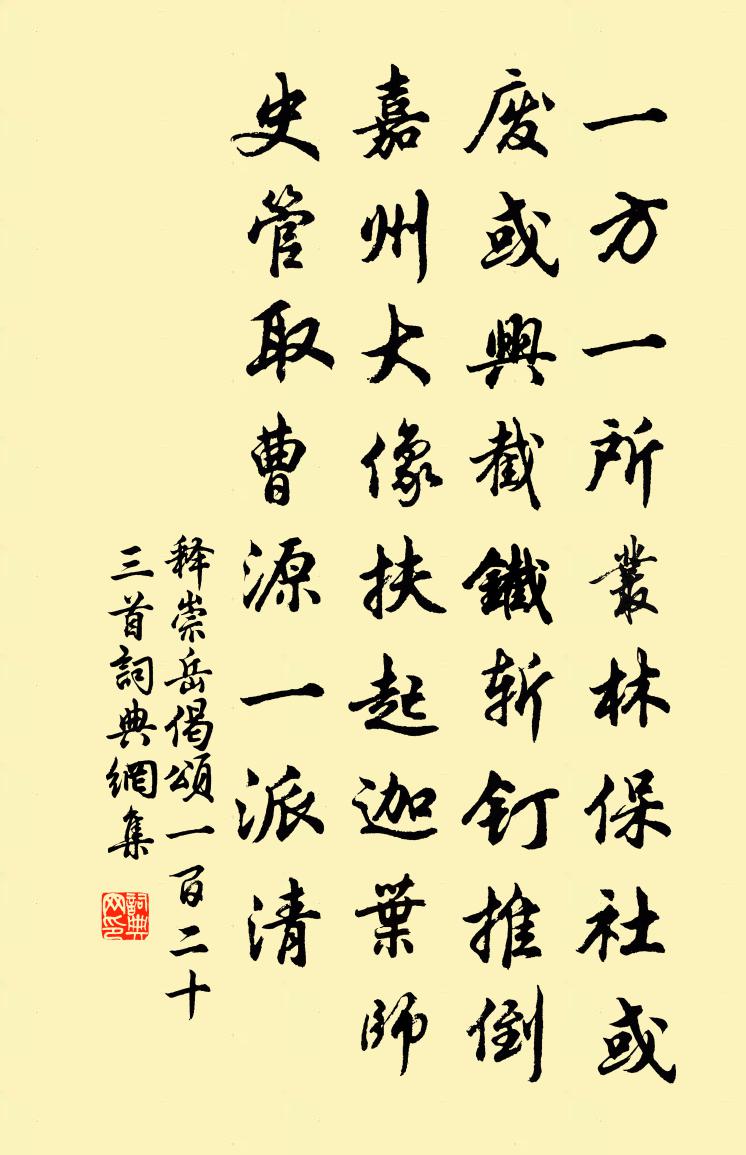 一方一所叢林保社或
废或興截鐵斬釘推倒
嘉州大像扶起迦葉師
史管取曹源一派清
释崇岳偈頌一百二十
三首詞典網集
詞典网印